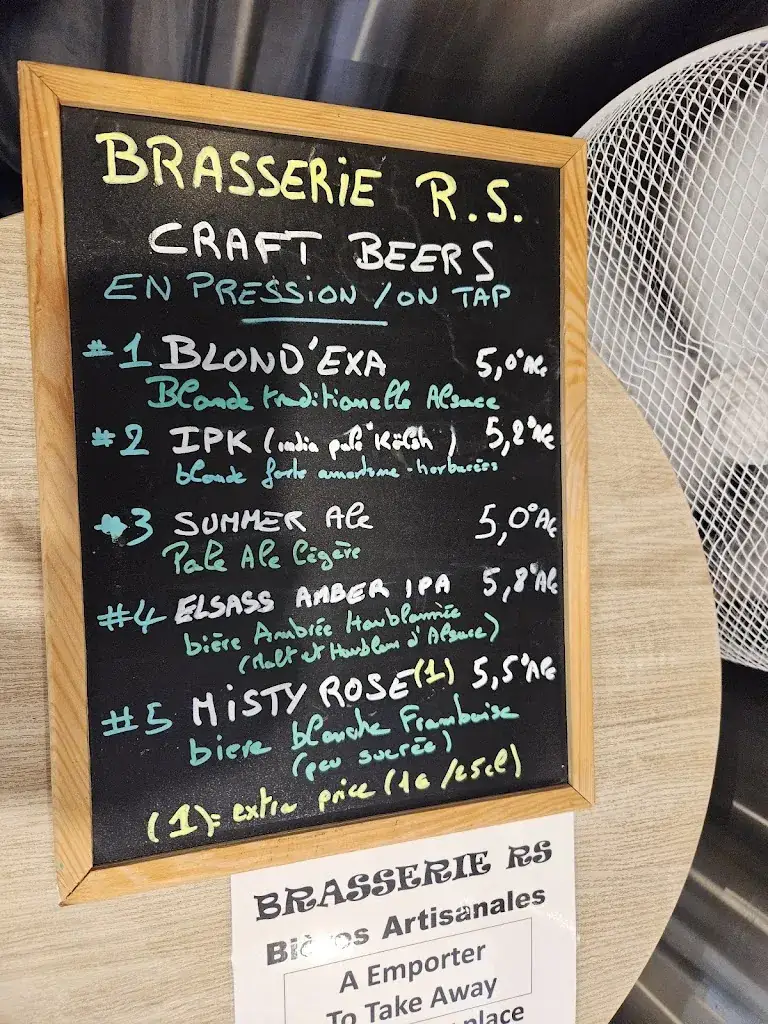 BRASSERIE R.S.
CRAFT BEERS
EN PRESSION / ON TAP
#1 BLOND'EXA 5,0°Alc
Blonde traditionelle Alsace
#2 IPK (india pale Kölsh) 5,2°Alc
blonde forte amertume-herbacées
#3 SUMMER Ale 5,0°Alc
Pale Ale légère
#4 ELSASS AMBER IPA 5,8°Alc
bière Ambrée Houblonnée
(Malt et Houblon d'Alsace)
#5 MISTY ROSE (1) 5,5°Alc
biere blanche Framboise
(peu sucrée)
(1)= extra price (1€/25cl)
BRASSERIE RS
Bières Artisanales
A Emporter
To Take Away
place